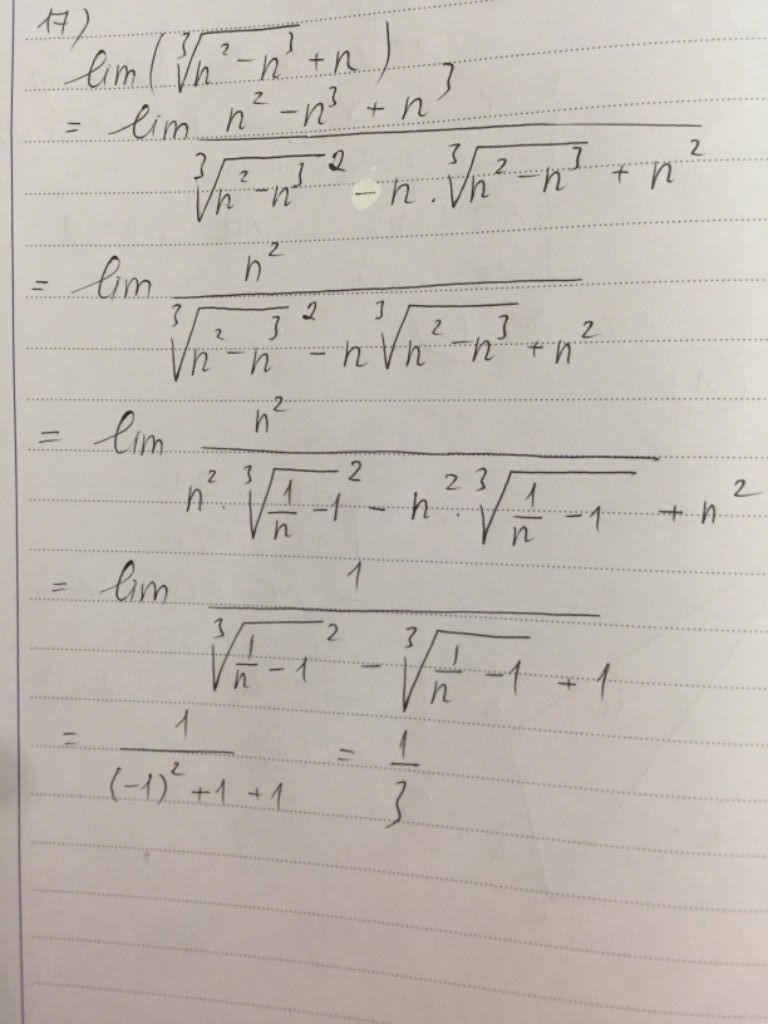 17)
lim(∛(n² − n³) + n)
= lim (n² − n³ + n³) / (∛(n² − n³)² − n . ∛(n² − n³) + n²)
= lim n² / (∛(n² − n³)² − n ∛(n² − n³) + n²)
= lim n² / (n² . ∛(1/n − 1)² − n² . ∛(1/n − 1) + n²)
= lim 1 / (∛(1/n − 1)² − ∛(1/n − 1) + 1)
= 1 / ((−1)² + 1 + 1) = 1/3